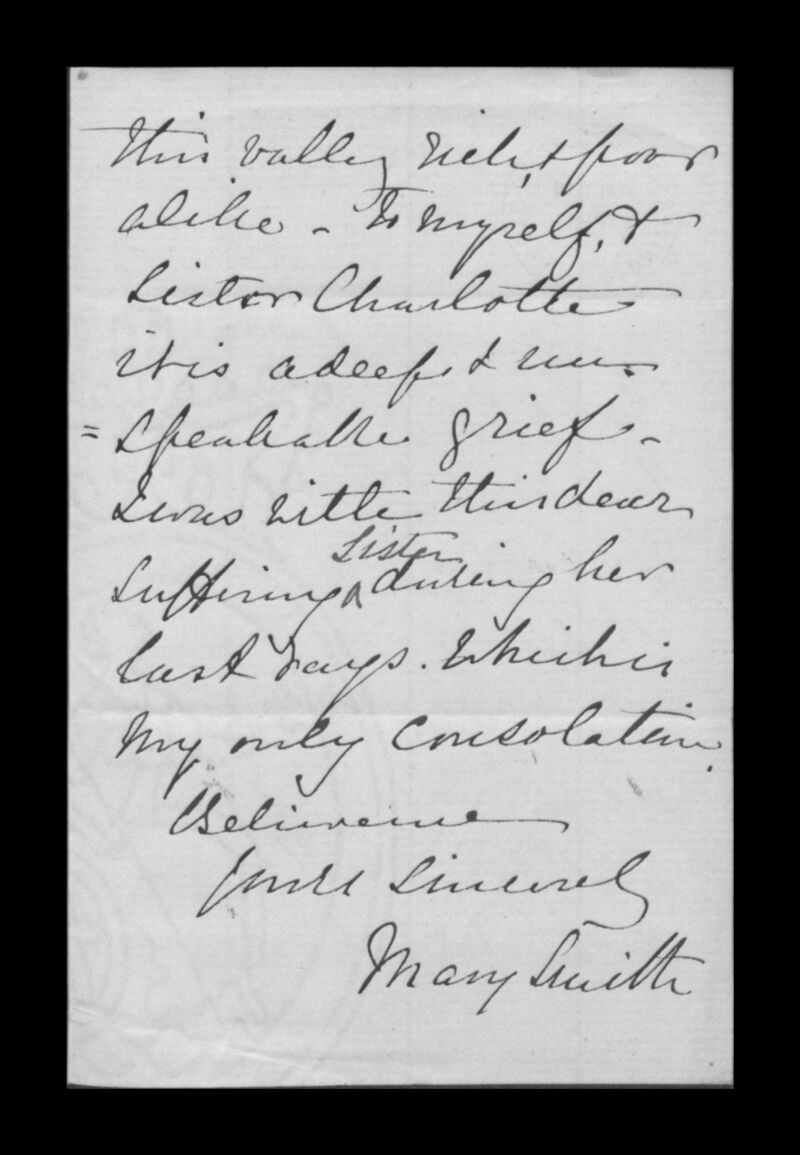 this valley rich, & poor
alike - To myself, &
Sister Charlotte
it is a deep & un-
=speakable grief -
I was with this dear
suffering ^ Sister during her
last days. Which is
my only consolation.
Believe me
yours sincerely
Mary Smith